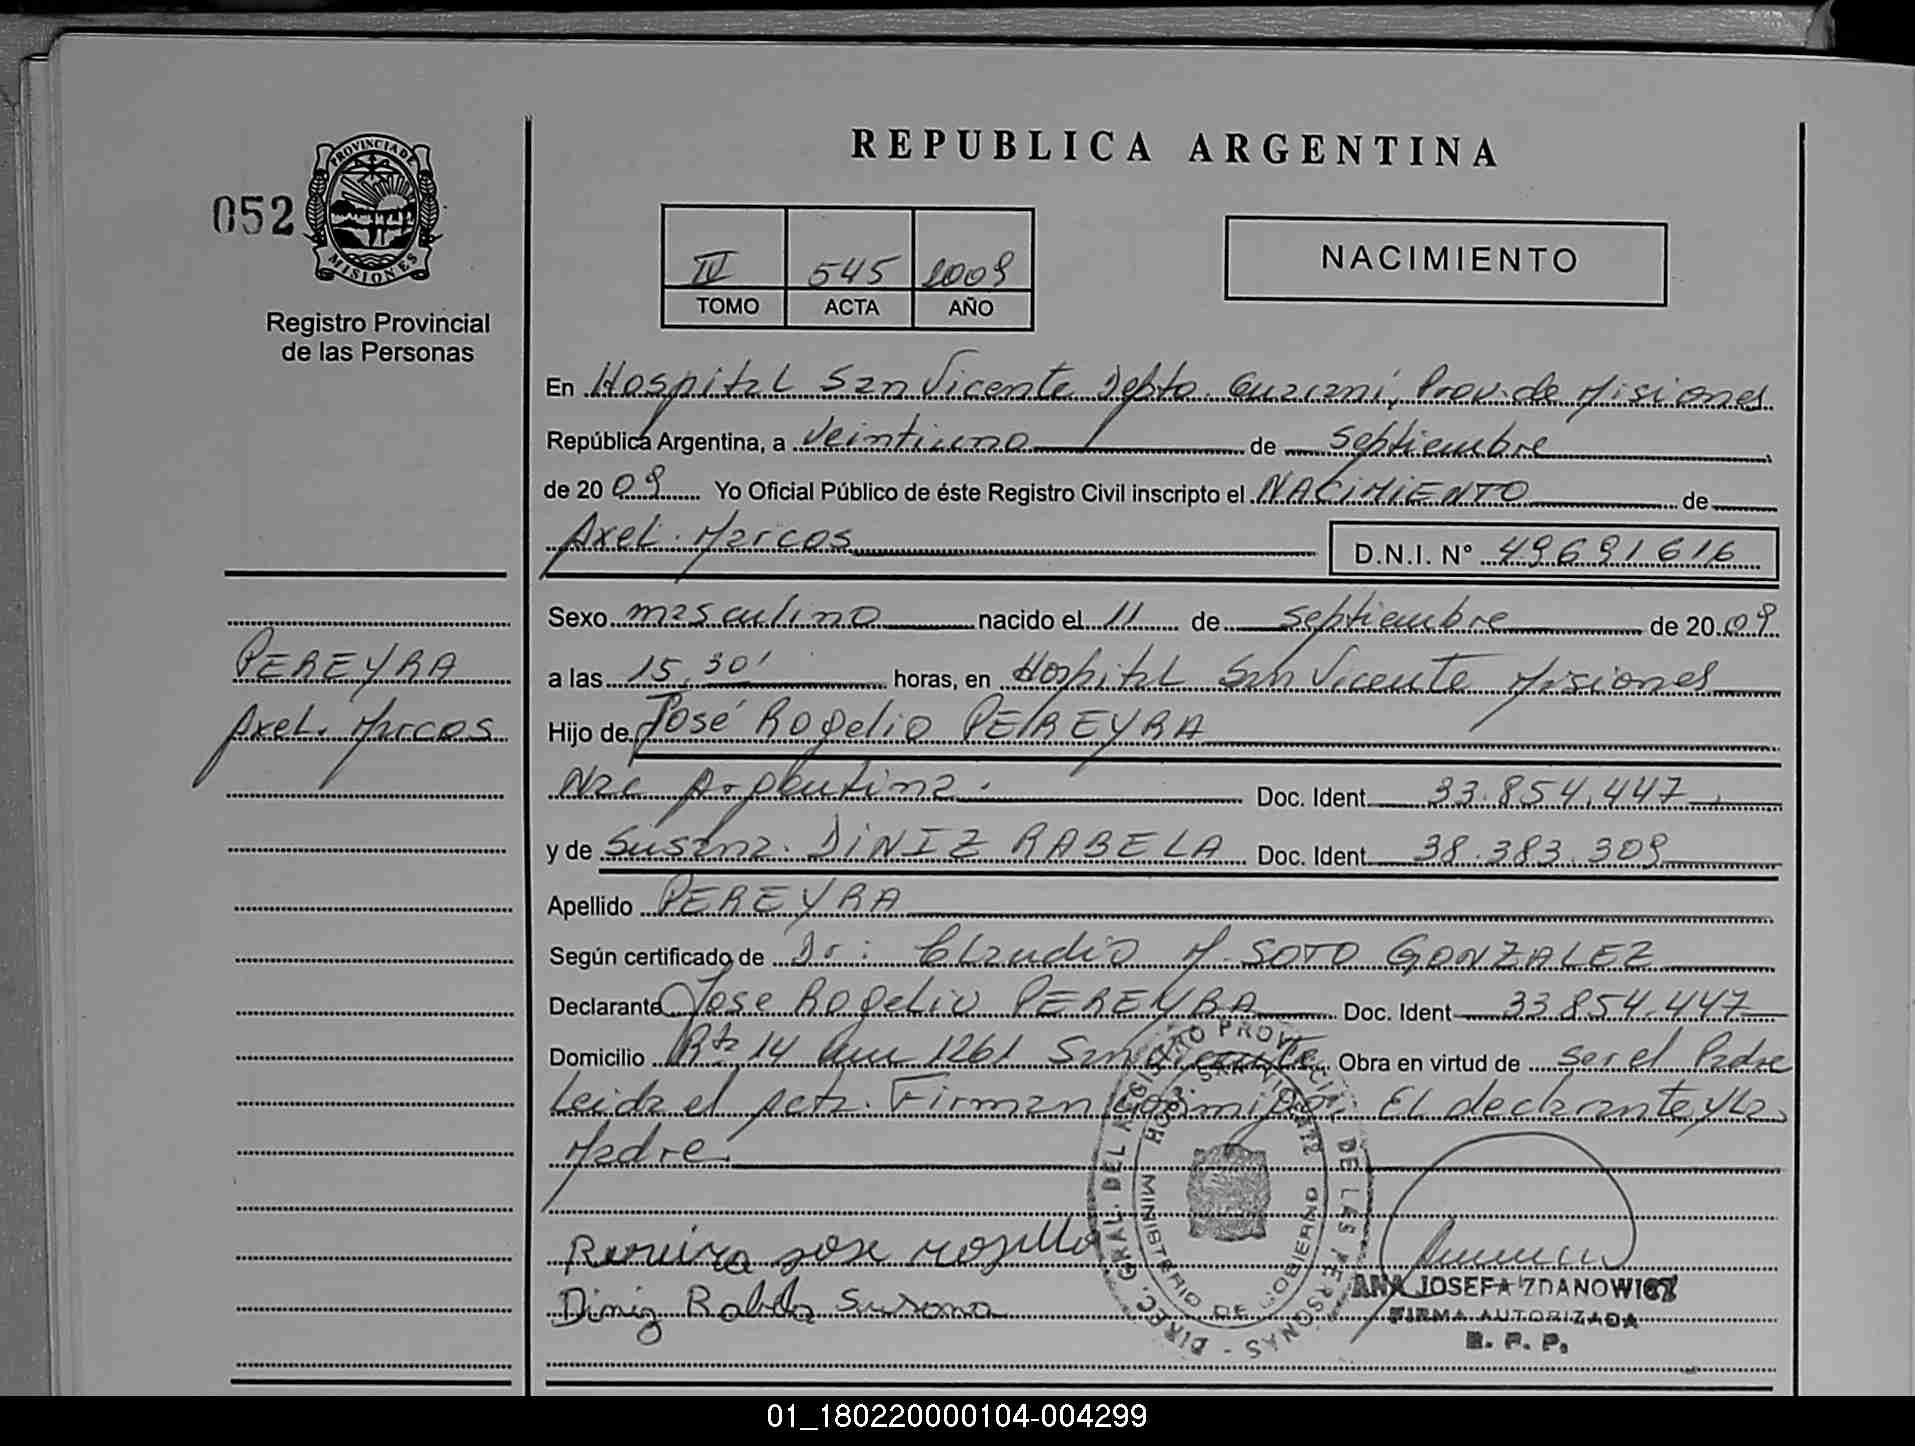 REPUBLICA ARGENTINA
PROVINCIA DE
MISIONES
052
Registro Provincial
de las Personas
IV 545 2009
TOMO ACTA AÑO
NACIMIENTO
En Hospital San Vicente Depto. Guaraní, Prov. de Misiones
República Argentina, a veintiuno de septiembre
de 20 09 Yo Oficial Público de éste Registro Civil inscripto el NACIMIENTO de
Axel. Marcos D.N.I. N° 49691616
Sexo masculino nacido el 11 de septiembre de 20 09
PEREYRA
Axel. Marcos
a las 15,30' horas, en Hospital San Vicente Misiones
Hijo de José Rogelio PEREYRA
Nac Argentina. Doc. Ident 33.854.447
y de Susana. DiNIZ RABELA Doc. Ident 38.383.309
Apellido PEREYRA
Según certificado de Dr: Claudio M. SOTO GONZALEZ
Declarante Jose Rogelio PEREYRA Doc. Ident 33.854.447
Domicilio Rta 14 km 1261 San Vicente Obra en virtud de ser el Padre
Leida el acta. Firman conmigo: El declarante y la
Madre.
Pereira jose rogelio
Diniz Rabela Susana
DIREC. GRAL. DEL REGISTRO PROVINCIAL DE LAS PERSONAS -
HOSP. SAN VICENTE
MINISTERIO DE GOBIERNO
ANA JOSEFA ZDANOWICZ
FIRMA AUTORIZADA
R. P. P.
01_180220000104-004299